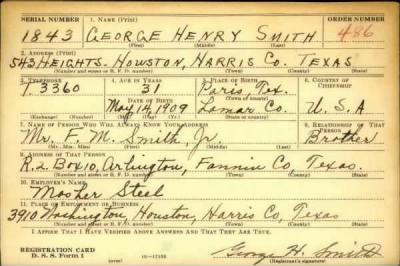 SERIAL NUMBER 1. NAME (Print) ORDER NUMBER
1843 GEORGE HENRY SMITH 486
(First) (Middle) (Last)
2. ADDRESS (Print)
543 HEIGHTS - HOUSTON, HARRIS CO. TEXAS
(Number and street or R. F. D. number) (Town) (County) (State)
3. TELEPHONE 4. AGE IN YEARS 5. PLACE OF BIRTH 6. COUNTRY OF CITIZENSHIP
T. 3360 31 Paris, Tex.
DATE OF BIRTH (Town or county)
May 14, 1909 Lamar Co. U. S. A
(Exchange) (Number) (Mo.) (Day) (Yr.) (State or country)
7. NAME OF PERSON WHO WILL ALWAYS KNOW YOUR ADDRESS 8. RELATIONSHIP OF THAT PERSON
Mr. F. M. Smith, Jr. Brother
(Mr., Mrs., Miss) (First) (Middle) (Last)
9. ADDRESS OF THAT PERSON
R.2. Box 10, Arlington, Fannin Co, Texas.
(Number and street or R. F. D. number) (Town) (County) (State)
10. EMPLOYER'S NAME
Mosher Steel
11. PLACE OF EMPLOYMENT OR BUSINESS
3910 Washington, Houston, Harris Co, Texas
(Number and street or R. F. D. number) (Town) (County) (State)
I AFFIRM THAT I HAVE VERIFIED ABOVE ANSWERS AND THAT THEY ARE TRUE.
REGISTRATION CARD George H. Smith
D. S. S. Form 1 (Registrant's signature)